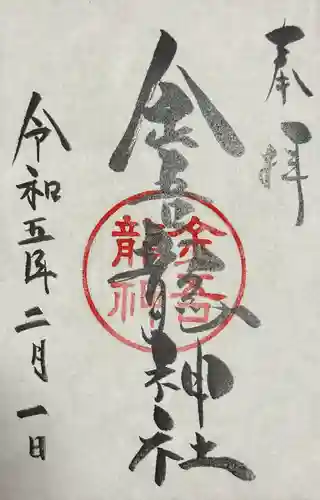 奉拝
金吉龍神社
金吉
龍神
令和五年二月一日